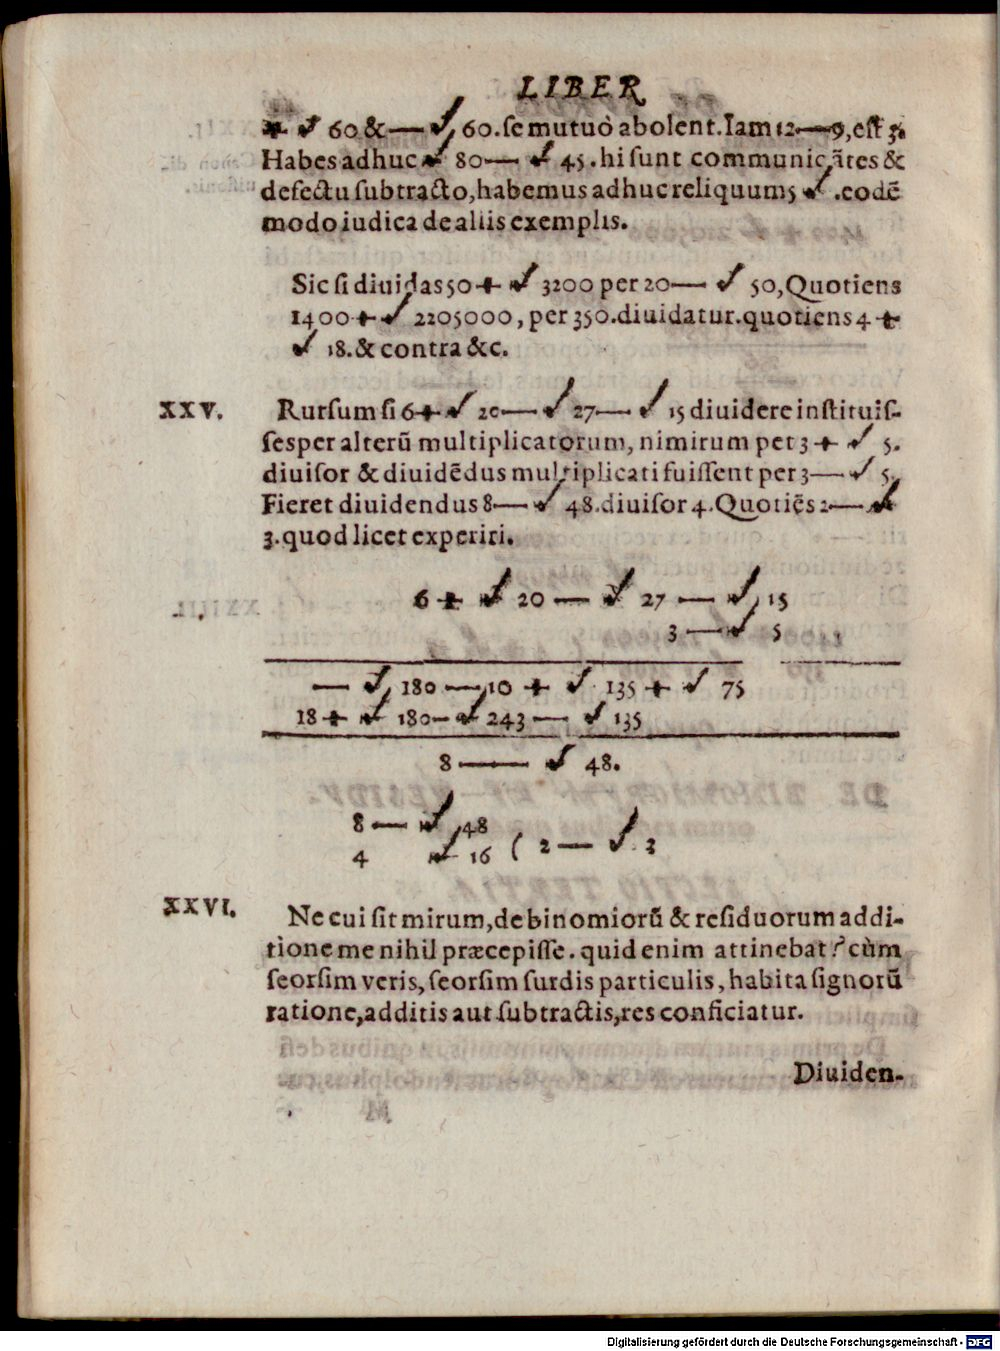 LIBER
+ √ 60 & — √ 60. se mutuò abolent. Iam 12 — 9, est 3.
Habes adhuc √ 80 — √ 45. hi sunt communicātes &
defectu subtracto, habemus adhuc reliquum 5 √ . eodē
modo iudica de aliis exemplis.
Sic si diuidas 50 + √ 3200 per 20 — √ 50, Quotiens
1400 + √ 2205000, per 350. diuidatur. quotiens 4 +
√ 18. & contra &c.
XXV. Rursum si 6 + √ 20 — √ 27 — √ 15 diuidere instituis-
ses per alterū multiplicatorum, nimirum per 3 + √ 5.
diuisor & diuidēdus multiplicati fuissent per 3 — √ 5.
Fieret diuidendus 8 — √ 48. diuisor 4. Quotiēs 2 — √
3. quod licet experiri.
6 + √ 20 — √ 27 — √ 15
3 — √ 5
— √ 180 — 10 + √ 135 + √ 75
18 + √ 180 — √ 243 — √ 135
8 — √ 48.
8 — √ 48
4 √ 16 ( 2 — √ 3
XXVI. Ne cui sit mirum, de binomiorū & residuorum addi-
tione me nihil præcepisse. quid enim attinebat? cùm
seorsim veris, seorsim surdis particulis, habita signorū
ratione, additis aut subtractis, res conficiatur.
Diuiden-
Digitalisierung gefördert durch die Deutsche Forschungsgemeinschaft - DFG